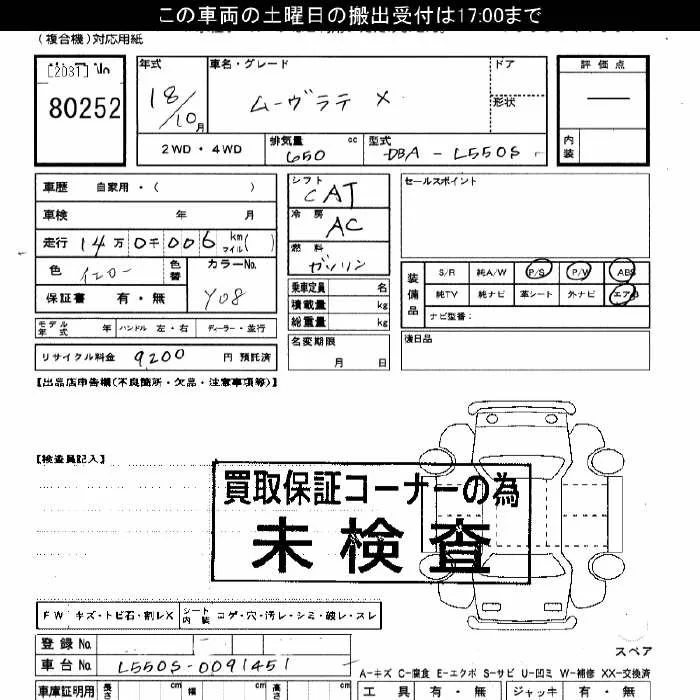 この車両の土曜日の搬出受付は17:00まで
(複合機)対応用紙
80252
年式 車名・グレード ドア 評価点
18/10月 ムーヴラテ X 形状
2WD・4WD 排気量 cc 650 型式 DBA-L550S 内装
車歴 自家用・( )
シフト CAT
セールスポイント
車検 年 月
冷房 AC
走行 14万0千006 km マイル( )
燃料 ガソリン
色 イエロー 色替 カラーNo. Y08
保証書 有・無
乗車定員 名
積載量 kg
総重量 kg
装備品 S/R 純A/W P/S P/W ABS
純TV 純ナビ 革シート 外ナビ エアB
ナビ型番:
モデル年式 年 ハンドル 左・右 ディーラー・並行
名変期限 月 日
後日品
リサイクル料金 9200 円 預託済
【出品店申告欄(不良箇所・欠品・注意事項等)】
【検査員記入】
買取保証コーナーの為
未検査
FW キズ・トビ石・割レX シート内装 コゲ・穴・汚レ・シミ・破レ・スレ
登録No.
スペア
車台No. L550S-0091451
A-キズ C-腐食 E-エクボ S-サビ U-凹ミ W-補修 XX-交換済
車庫証明用 長さ cm 幅 cm 高さ cm
工具 有・無 ジャッキ 有・無